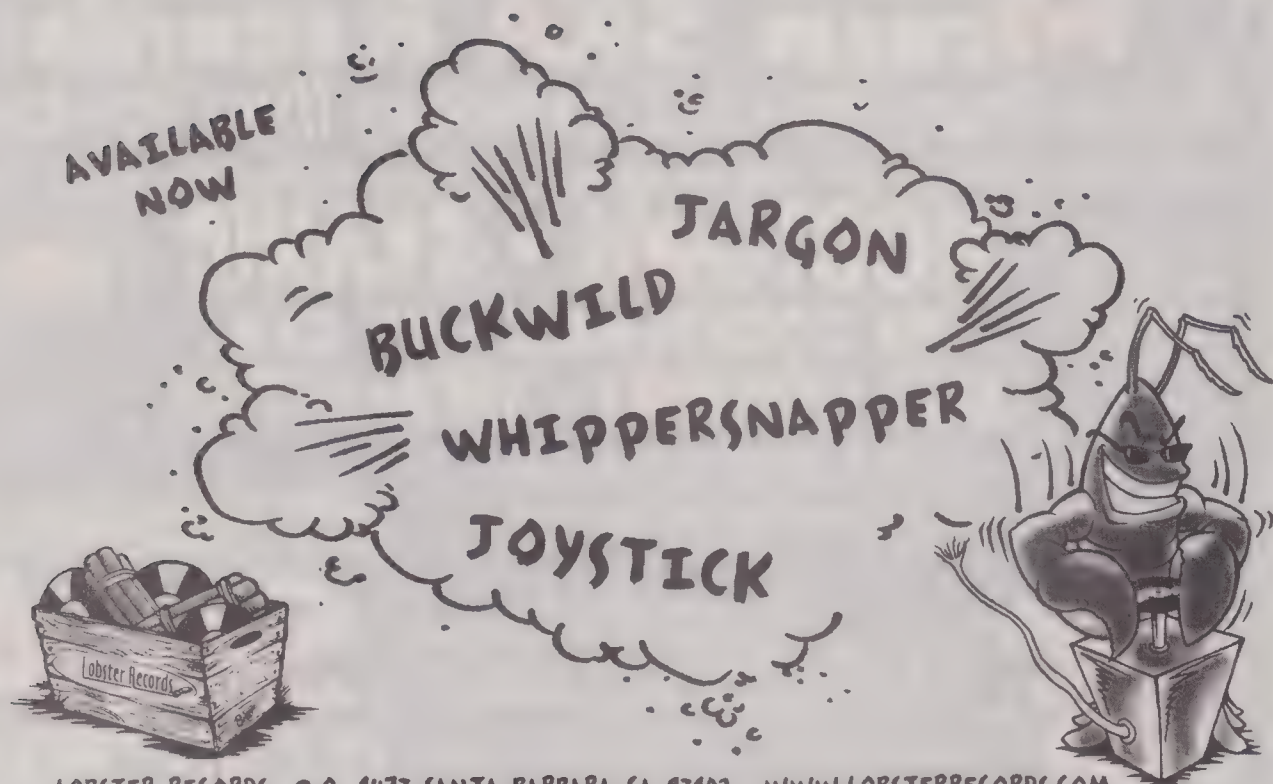 AVAILABLE
NOW
JARGON
BUCKWILD
WHIPPERSNAPPER
JOYSTICK
Lobster Records
LOBSTER RECORDS SANTA BARBARA CA WWW.LOBSTERRECORDS.COM